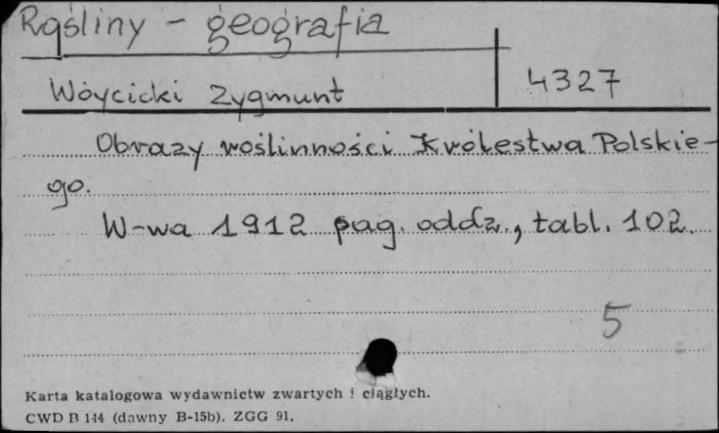 Rośliny - geografia
Wóycicki Zygmunt 4327
Obrazy roślinności Królestwa Polskie-
go.
W-wa 1912 pag. oddz., tabl. 102.
5
Karta katalogowa wydawnictw zwartych i ciągłych.
CWD B 144 (dawny B-15b). ZGG 91.